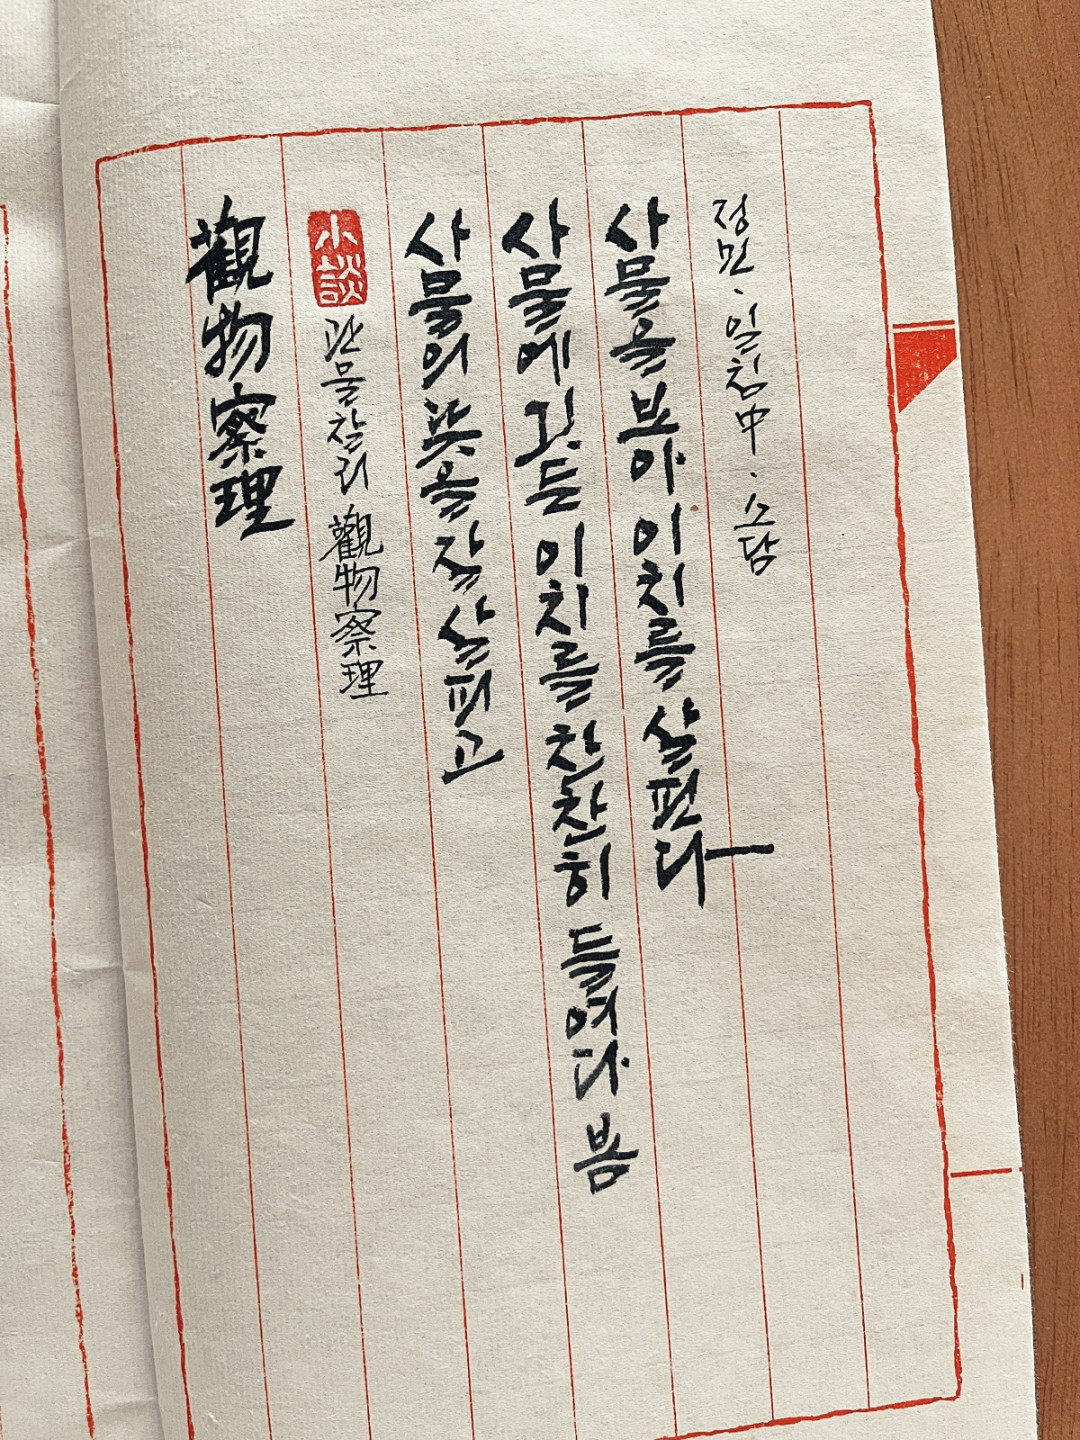 觀物察理
小談
관물찰리 觀物察理
사물의 뜻을 잘 살피고
사물에 깃든 이치를 찬찬히 들여다 봄
사물을 보아 이치를 살핀다
정민·일침中·소담